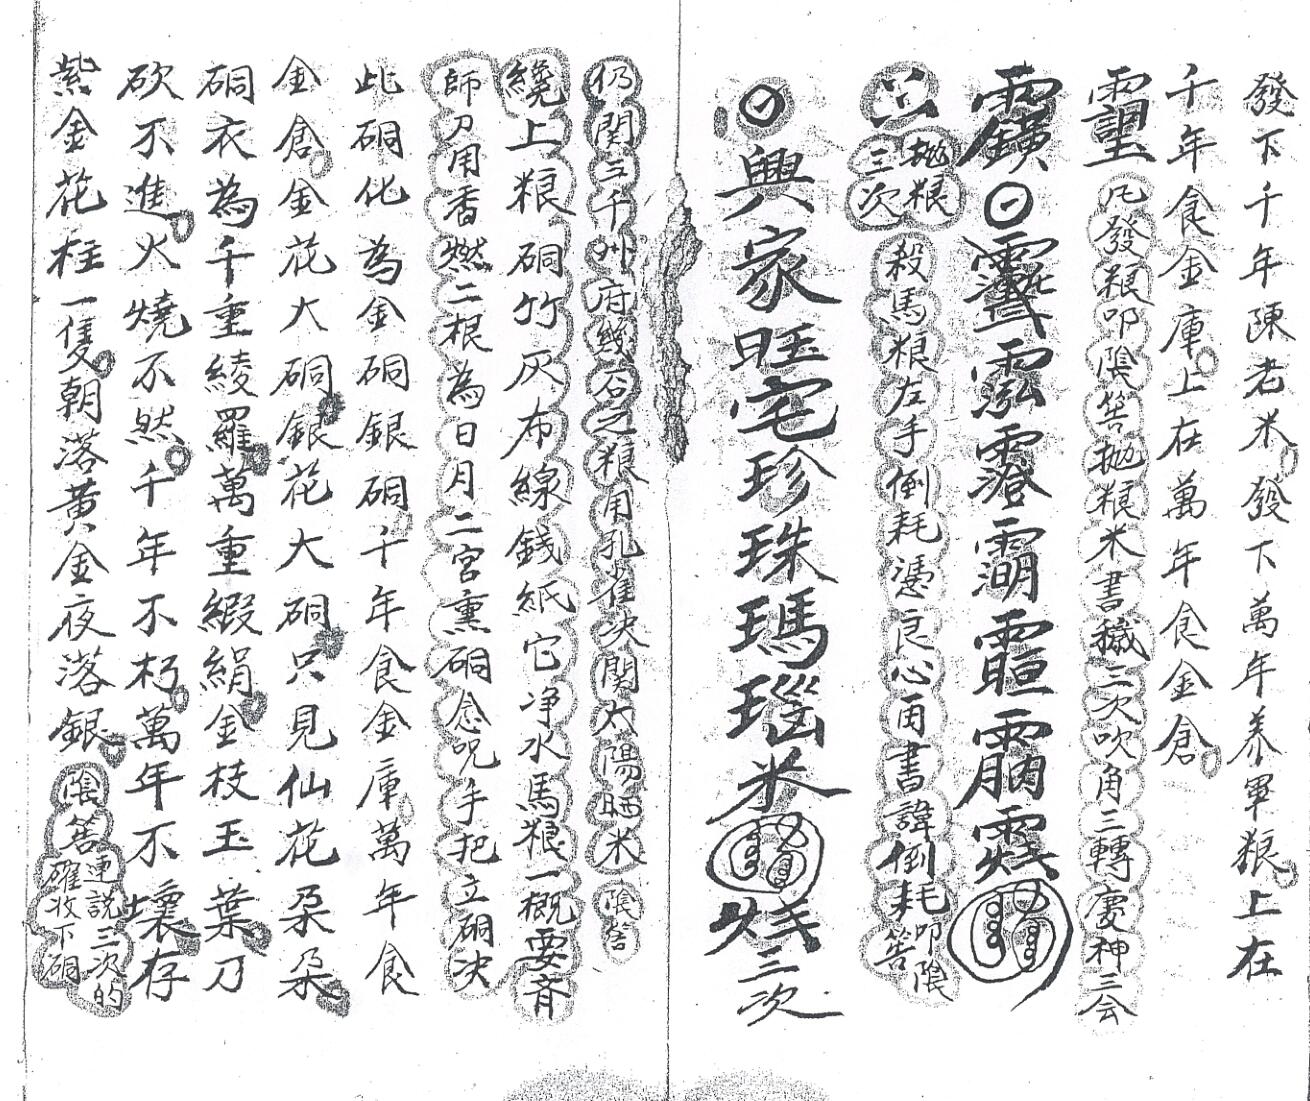 發下千年陳老米發下萬年养軍粮上在
千年食金庫上在萬年食金倉
凡發粮叩陰筶抛粮米書穢三次吹角三轉慶神三会
抛粮三次殺馬粮左手倒耗憑良心由書諱倒耗叩陰筶
興家旺宅珍珠瑪瑙米三次
仍関三千州府幾石之粮用孔雀决関太陽晒米陰筶
繞上粮硐竹灰布線錢紙它净水馬粮一概要斉
師刀用香燃二根為日月二宮熏硐念呪手把立硐决
此硐化為金硐銀硐千年食金庫萬年食
金倉金花大硐銀花大硐只見仙花朵朵
硐衣為千重綾羅萬重緞絹金枝玉葉刀
砍不進火燒不然千年不朽萬年不壞存
紫金花柱一隻朝落黄金夜落銀陰筶連説三次的確收下硐